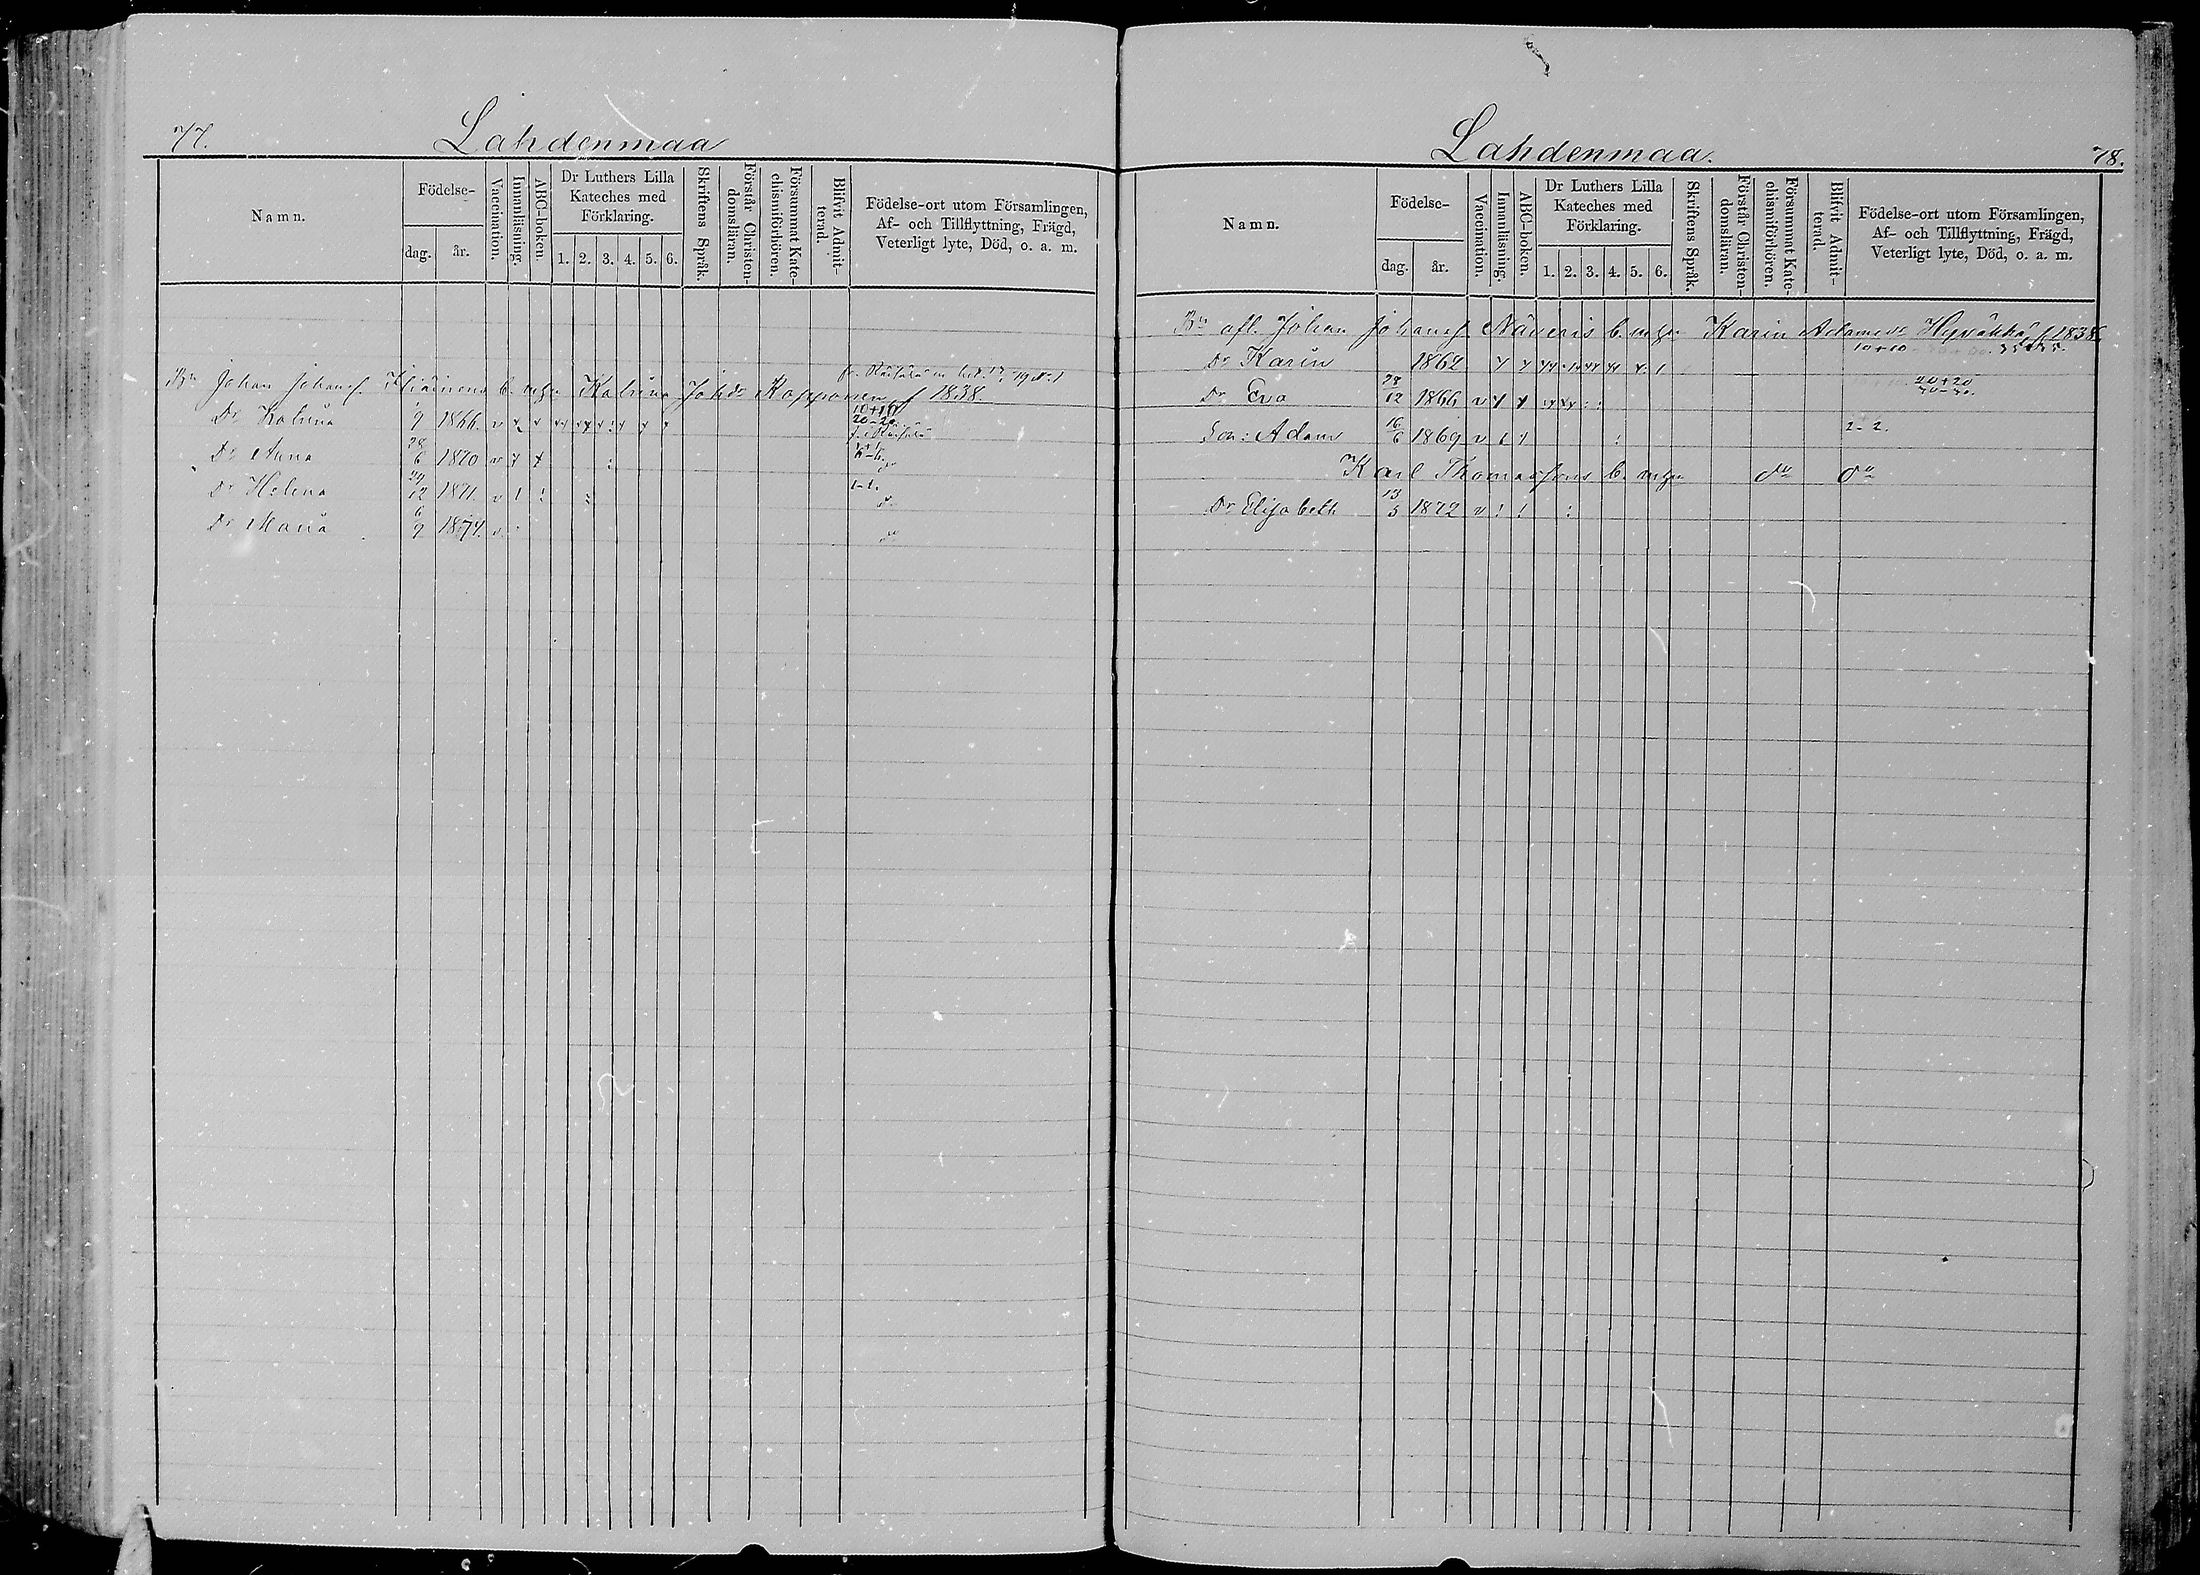 77.
Lahdenmaa
Namn.
Födelse-
dag.
år.
Vaccination.
Innanläsning.
ABC-boken.
Dr Luthers Lilla
Kateches med
Förklaring.
1. 2. 3. 4. 5. 6.
Skriftens Språk.
Förstår Christen-
domsläran.
Försummat Kate-
chismiförhören.
Blifvit Admit-
terad.
Födelse-ort utom Församlingen,
Af- och Tillflyttning, Frägd,
Veterligt lyte, Död, o. a. m.
Bn Johan Johansf. b. m hu Katrina Johdr Kopponen f 1838.
Dr Katrina 9 1866. v
Dr Anna 28/6 1870 v
Dr Helena 29/12 1871. v
Dr Maria 6/9 1874. v
Lahdenmaa.
78.
Namn.
Födelse-
dag.
år.
Vaccination.
Innanläsning.
ABC-boken.
Dr Luthers Lilla
Kateches med
Förklaring.
1. 2. 3. 4. 5. 6.
Skriftens Språk.
Förstår Christen-
domsläran.
Försummat Kate-
chismiförhören.
Blifvit Admit-
terad.
Födelse-ort utom Församlingen,
Af- och Tillflyttning, Frägd,
Veterligt lyte, Död, o. a. m.
Bn afl. Johan Johansf. Näveris b. m hu Karin Adamsdr Hyväkkä f 1838.
Dr Karin 1862
Dr Eva 28/12 1866 v 20+20
Son: Adam 16/6 1869 v 2-2.
Karl Thomassons b. m hu do do
Dr Elisabeth 13/3 1872 v